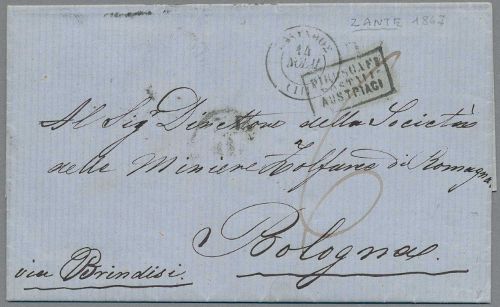 ZANTE 1867
14
PIROSCAFI
POSTALI
AUSTRIACI
Al Sigr Direttore della Società
delle Miniere Zolfuree di Romagna
6
Bologna
via Brindisi.